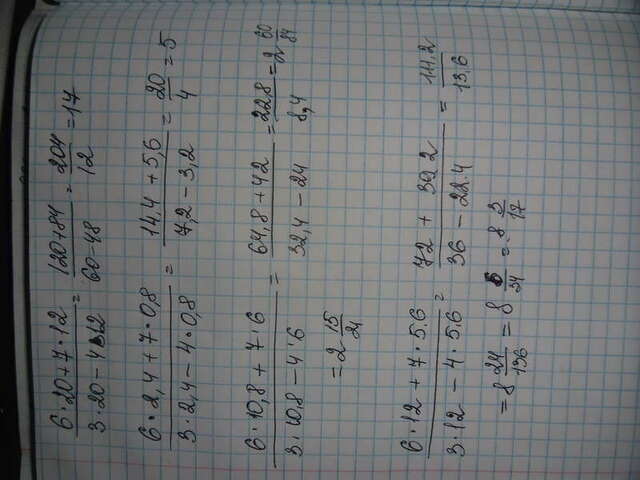 (6·20+7·12)/(3·20-4·12) = (120+84)/(60-48) = 204/12 = 17
(6·2,4+7·0,8)/(3·2,4-4·0,8) = (14,4+5,6)/(7,2-3,2) = 20/4 = 5
(6·10,8+7·6)/(3·10,8-4·6) = (64,8+42)/(32,4-24) = 22,8/8,4 = 2 60/84
= 2 15/21
(6·12+7·5.6)/(3·12-4·5.6) = (72+39.2)/(36-22.4) = 111.2/13,6
= 8 24/136 = 8 6/34 = 8 3/17